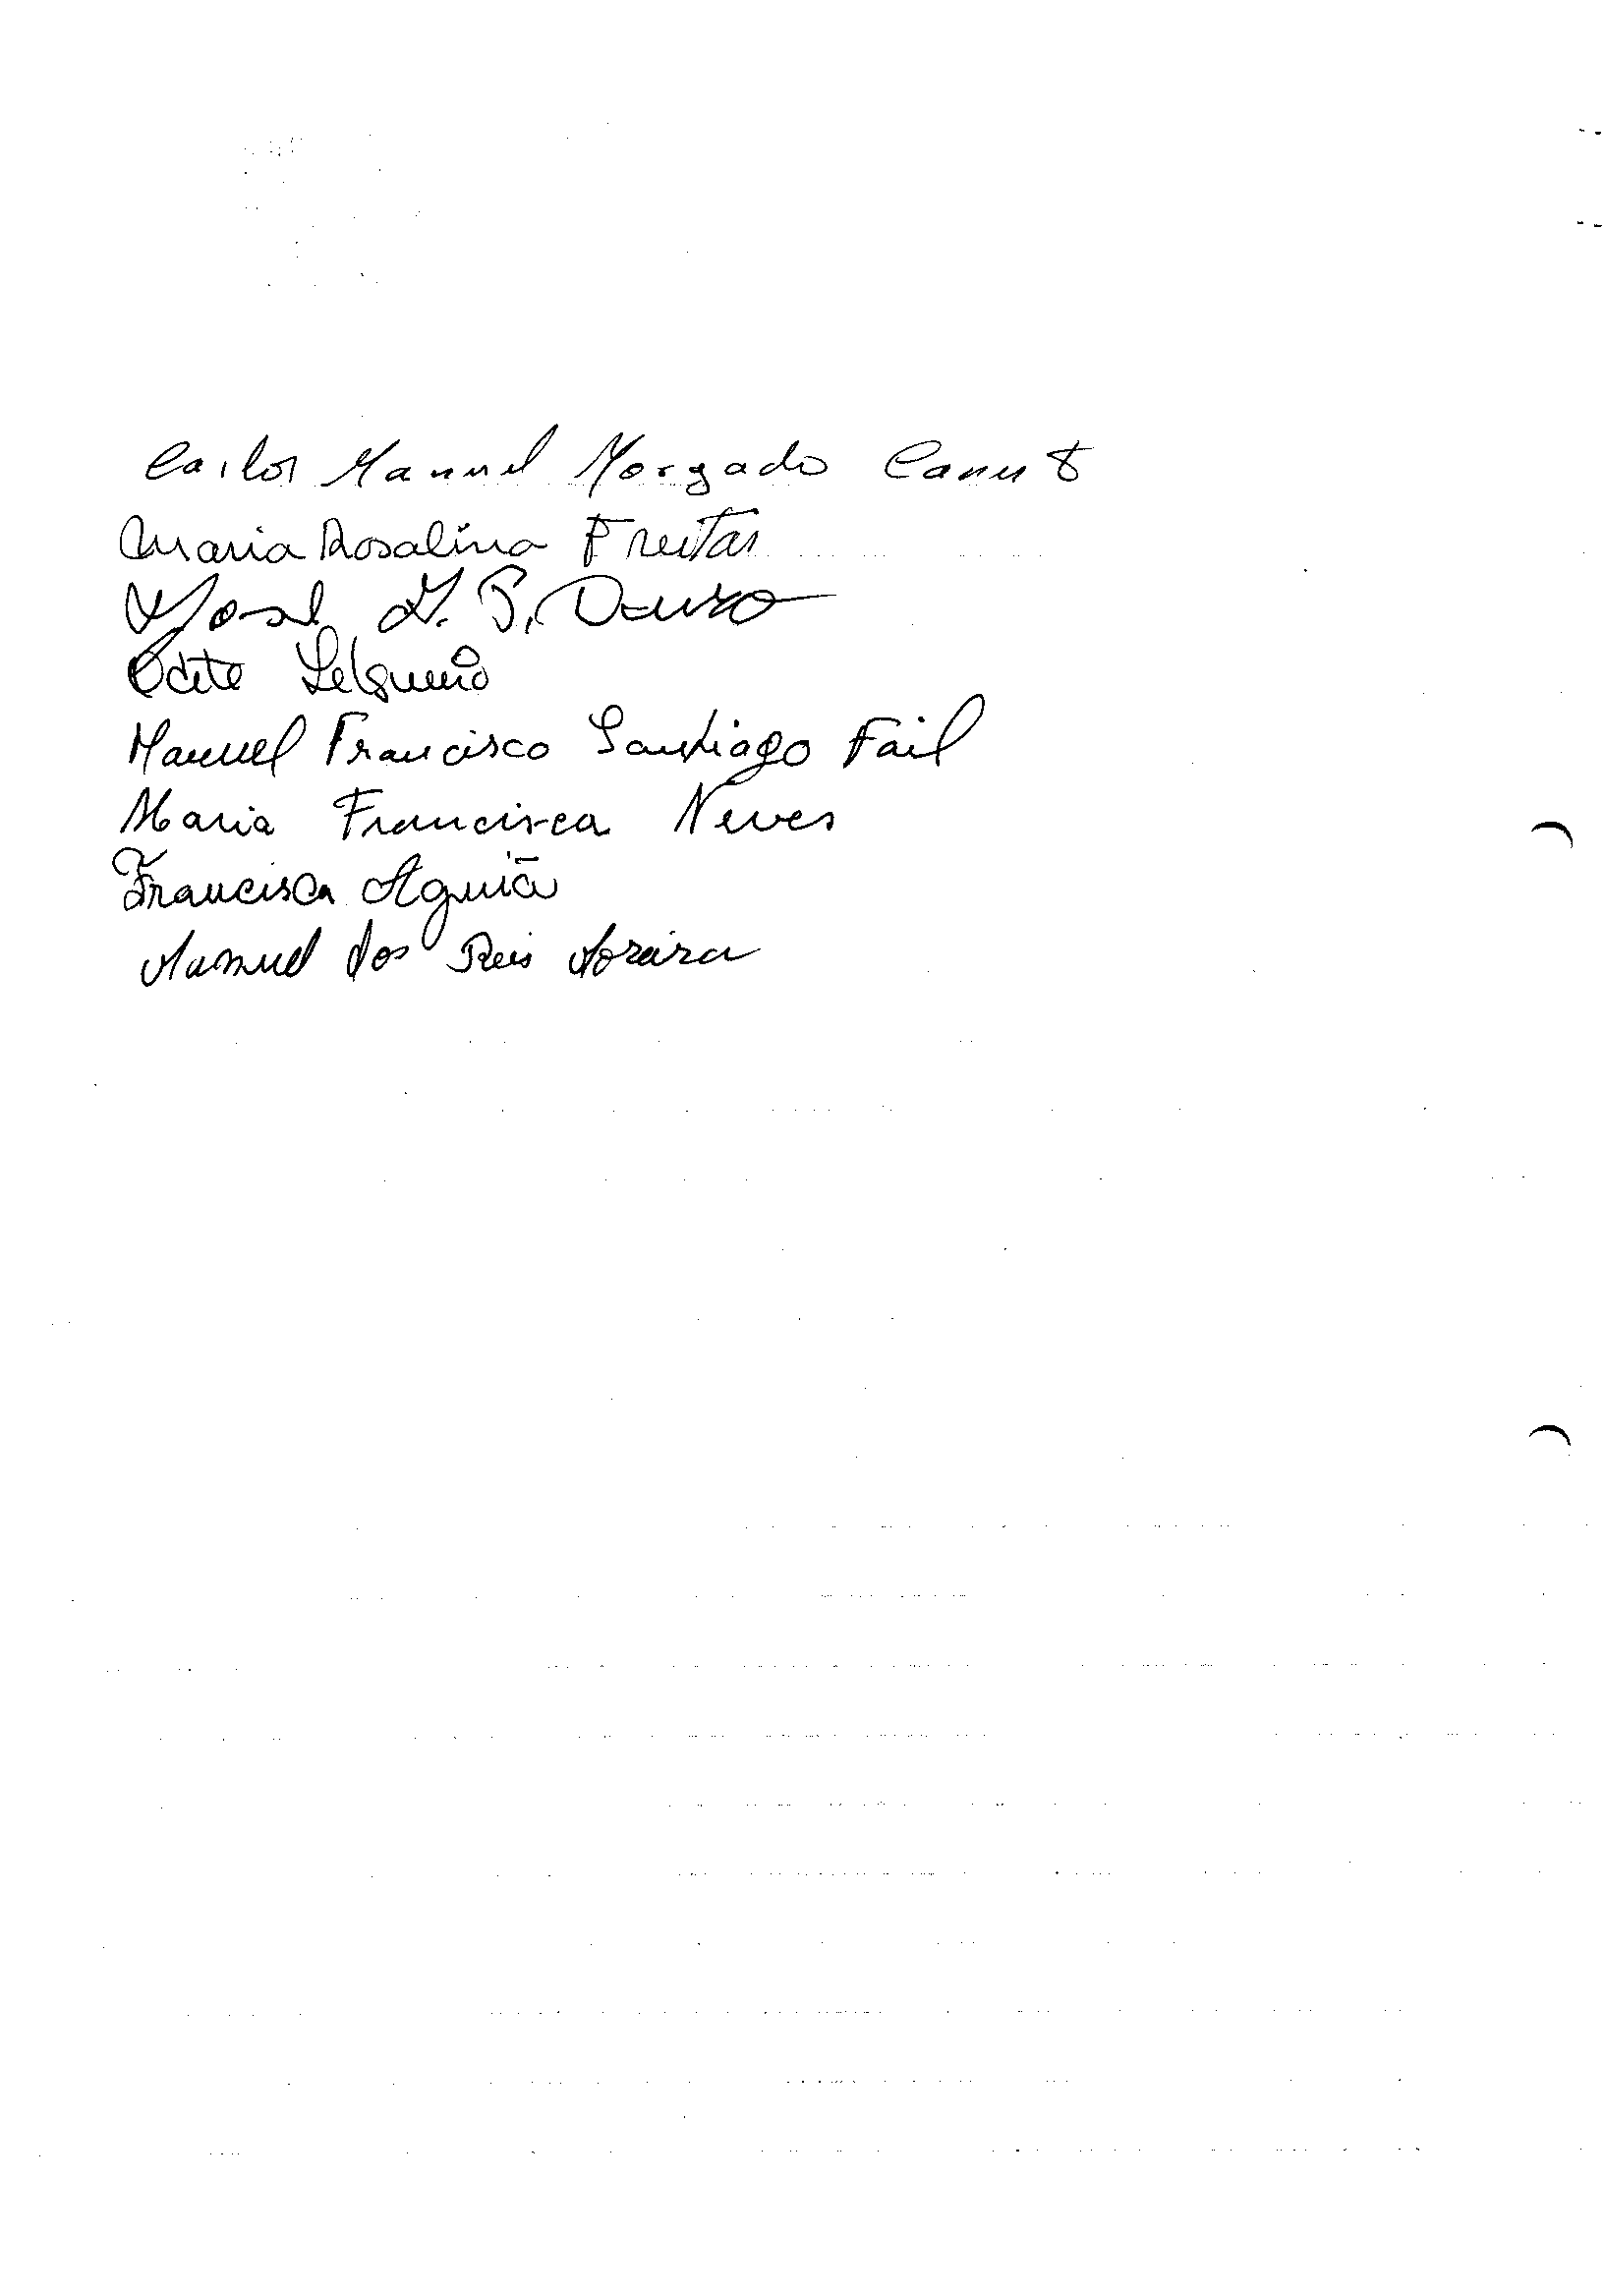 Carlos Manuel Morgado Canut
Maria Rosalina Freitas
José M. P. Douro
Odete
Manuel Francisco Santiago Fail
Maria Francisca Neves
Francisca Aguiã
Manuel dos Reis